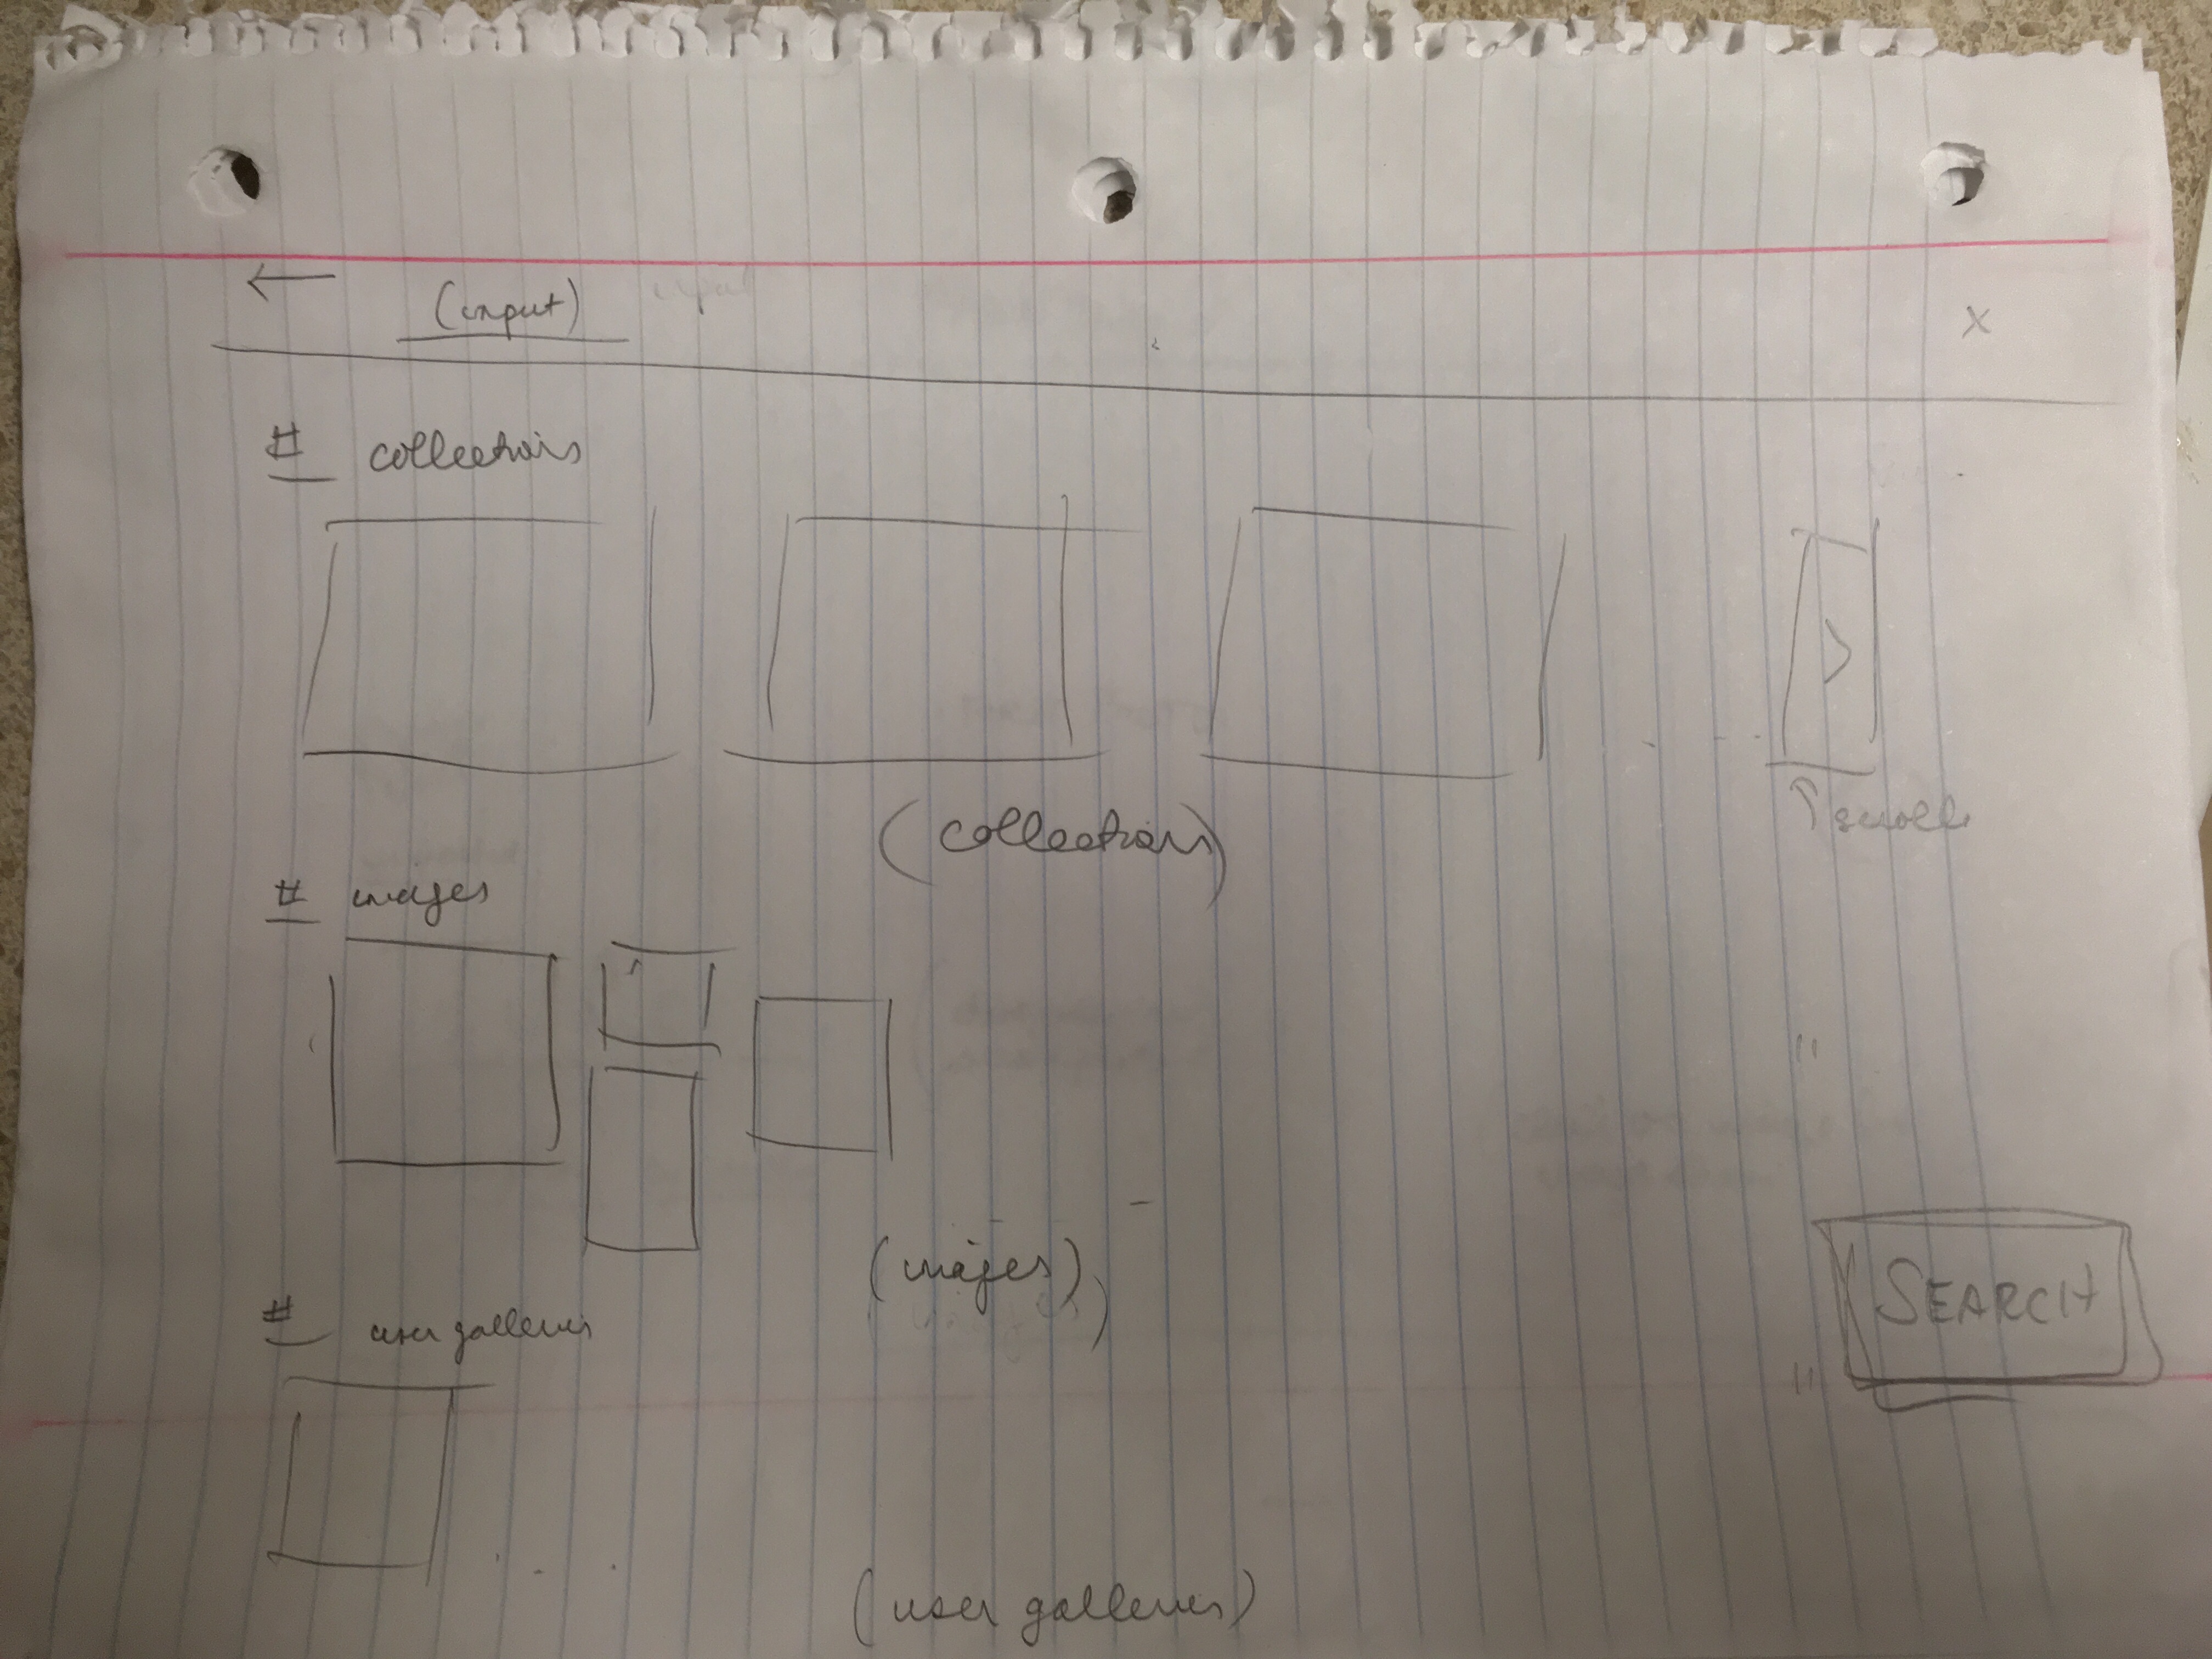 (input)
x
# collections
>
(collections)
↑ scroll
# images
"
(images)
SEARCH
# user galleries
"
(user galleries)